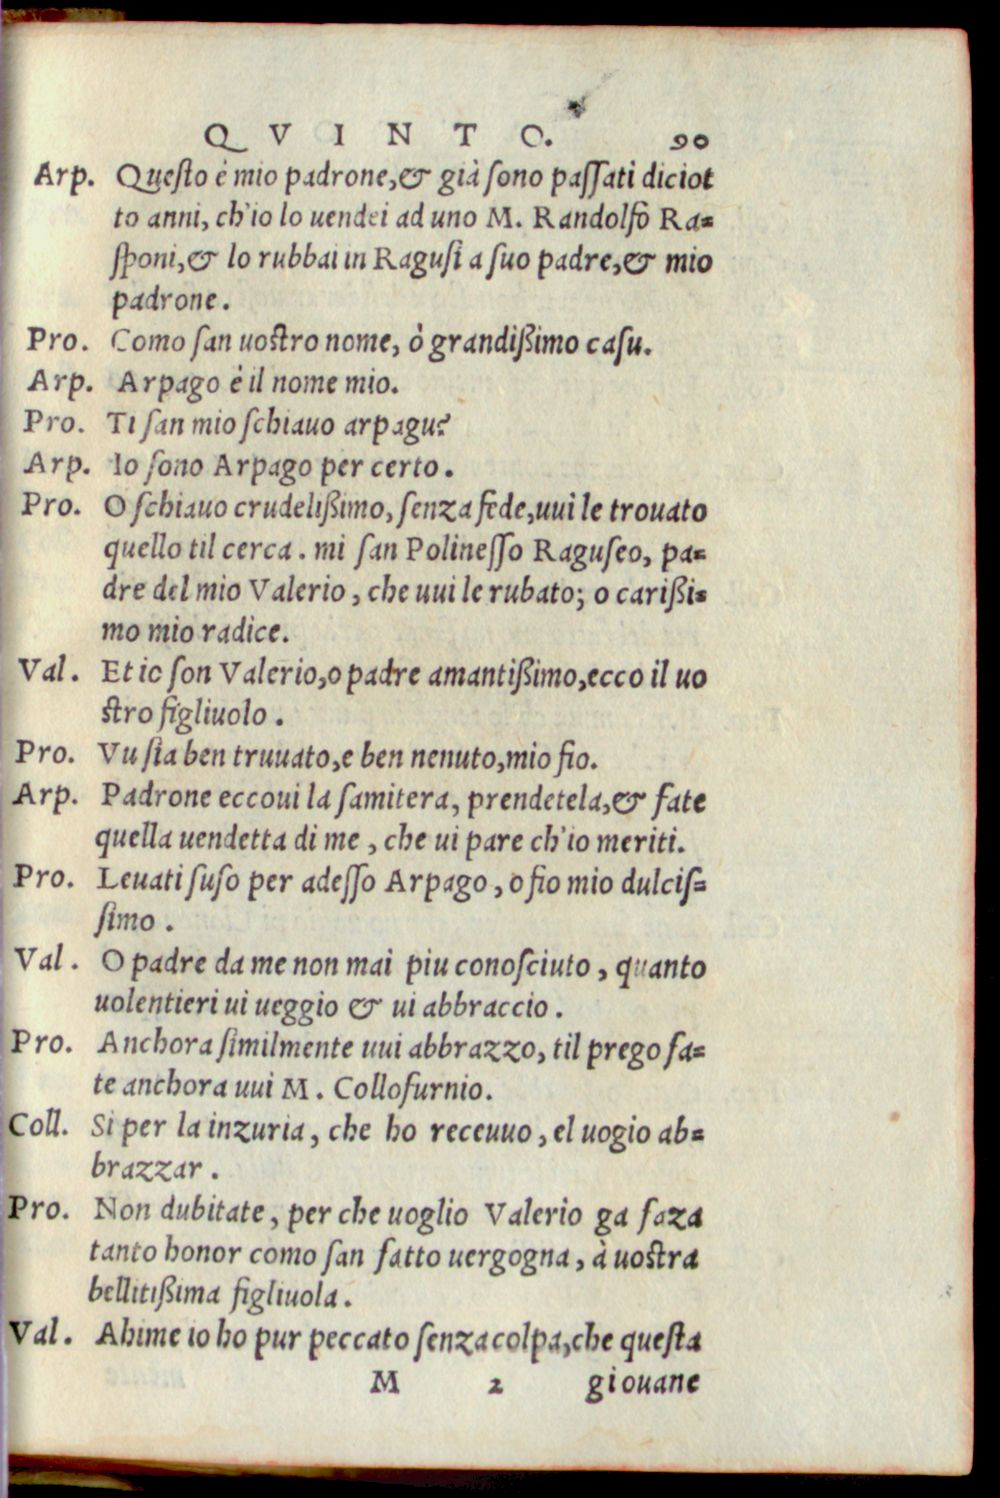 QVINTO. 90
Arp. Queſto é mio padrone,& già ſono paſſati diciot
to anni, ch'io lo uendei ad uno M. Randolfo Ra=
ſponi,& lo rubbai in Raguſi a ſuo padre,& mio
padrone.
Pro. Como ſan uoſtro nome, ò grandißimo caſu.
Arp. Arpago é il nome mio.
Pro. Ti ſan mio ſchiauo arpagu?
Arp. Io ſono Arpago per certo.
Pro. O ſchiauo crudelißimo, ſenza fede,uui le trouato
quello til cerca. mi ſan Polineſſo Raguſeo, pa=
dre del mio Valerio, che uui le rubato; o carißi=
mo mio radice.
Val. Et io ſon Valerio,o padre amantißimo,ecco il uo
ſtro figliuolo.
Pro. Vu ſia ben truuato,e ben nenuto,mio fio.
Arp. Padrone eccoui la ſamitera, prendetela,& fate
quella uendetta di me, che ui pare ch'io meriti.
Pro. Leuati ſuſo per adeſſo Arpago, o fio mio dulciſ=
ſimo.
Val. O padre da me non mai piu conoſciuto, quanto
uolentieri ui ueggio & ui abbraccio.
Pro. Anchora ſimilmente uui abbrazzo, til prego fa=
te anchora uui M. Collofurnio.
Coll. Si per la inzuria, che ho receuuo, el uogio ab=
brazzar.
Pro. Non dubitate, per che uoglio Valerio ga faza
tanto honor como ſan fatto uergogna, à uoſtra
bellitißima figliuola.
Val. Ahime io ho pur peccato ſenza colpa,che queſta
M 2 giouane